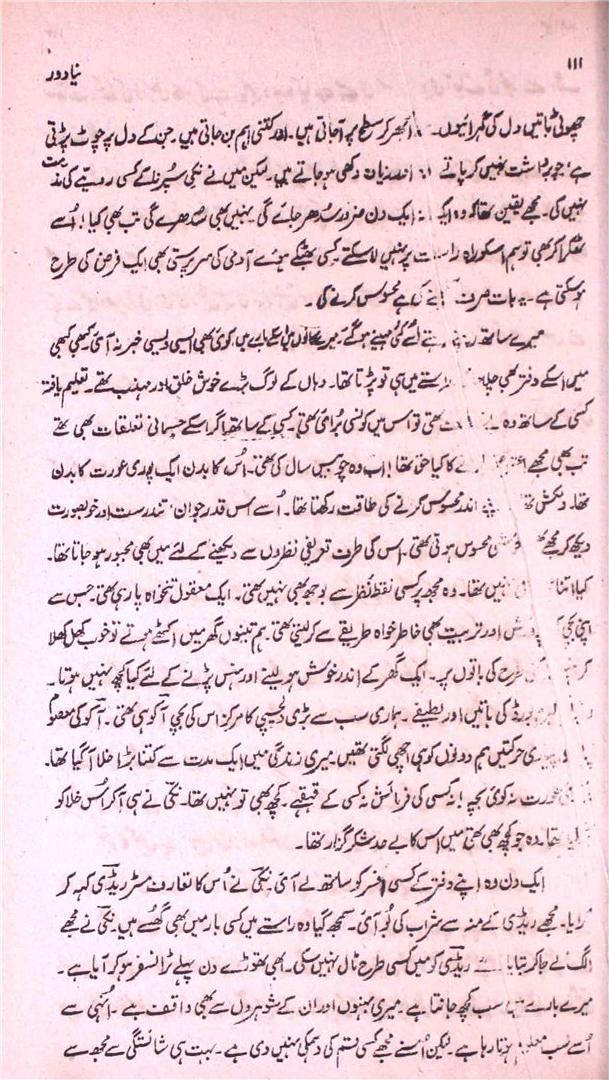 ۱۱۱
نیا دور
چھوٹی باتیں دل کی گہرائیوں۔ ابھر کر سطح پر آ جاتی ہیں۔ اور کتنی اہم بن جاتی ہیں۔ جن کے دل پر چوٹ پڑتی
ہے، جو برداشت نہیں کر پاتے دکھی ہو جاتے ہیں۔ لیکن میں نے نکی سُپرنا کے کسی رویے کی مذمت
نہیں کی۔ مجھے یقین تھا کہ وہ ایک نہ ایک دن ضرور سُدھر جائے گی۔ نہیں بھی سُدھرے گی تب بھی کیا! اُسے
ٹھکرا کر بھی تو ہم اسکو راہ راست پر نہیں لا سکتے۔ کسی بھٹکے ہوئے آدمی کی سرپرستی بھی ایک فرض کی طرح
ہو سکتی ہے۔ یہ بات صرف ہے محسوس کرنے کی۔
میرے ساتھ رہتے رہتے اُسے کئی مہینے ہو گئے۔ میرے کانوں میں اسکے بارے میں کوئی بھی ایسی ویسی خبر نہ آئی۔ کبھی کبھی
میں اسکے دفتر بھی چلا راستے میں ہی تو پڑتا تھا۔ وہاں کے لوگ بڑے خوش خلق اور مہذب تھے۔ تعلیم یافتہ
کسی کے ساتھ وہ تھی تو اس میں کونسی بُرائی تھی۔ کسی کے ساتھ اگر اسکے جسمانی تعلقات بھی تھے
تب بھی مجھے کا کیا حق تھا! اب وہ چوبیس سال کی تھی۔ اُس کا بدن ایک پوری عورت کا بدن
تھا۔ دلکش تھا اندر محسوس کرنے کی طاقت رکھتا تھا۔ اُسے اس قدر جوان، تندرست اور خوبصورت
دیکھ کر مجھے خوشی محسوس ہوتی تھی۔ اس کی طرف تعریفی نظروں سے دیکھنے کے لئے میں بھی مجبور ہو جاتا تھا۔
کیا اتنا نہیں تھا۔ وہ مجھ پر کسی نقطۂ نظر سے بوجھ بھی نہیں تھی۔ ایک معقول تنخواہ پا رہی تھی۔ جس سے
اپنی بچی کی پرورش اور تربیت بھی خاطر خواہ طریقے سے کر لیتی تھی۔ ہم تینوں گھر میں اکٹھے ہوتے تو خوب کھل کھلا
کر طرح کی باتوں پر۔ ایک گھر کے اندر خوش ہو لینے اور ہنس پڑنے کے لئے کیا کچھ نہیں ہوتا۔
کی باتیں اور لطیفے۔ ہماری سب سے بڑی دلچسپی کا مرکز اس کی بچی آکو ہی تھی۔ آکو کی معصوم
حرکتیں ہم دونوں کو ہی اچھی لگتی تھیں۔ میری زندگی میں ایک مدت سے کتنا بڑا خلا آ گیا تھا۔
عورت نہ کوئی بچہ! نہ کسی کی فرمائش نہ کسی کے قہقہے۔ کچھ بھی تو نہیں تھا۔ نکّی نے ہی آ کر اُس خلا کو
تھا۔ وہ جو کچھ بھی تھی میں اس کا بے حد شکر گزار تھا۔
ایک دن وہ اپنے دفتر کے کسی افسر کو ساتھ لے آئی۔ نکّی نے اُس کا تعارف مسٹر ریڈی کہہ کر
کرایا۔ مجھے ریڈی کے منہ سے شراب کی بُو آئی۔ سمجھ گیا وہ راستے میں کسی بار میں بھی گھُسے ہیں۔ نکّی نے مجھے
الگ لے جا کر بتایا ریڈی کو میں کسی طرح ٹال نہیں سکی۔ ابھی تھوڑے دن پہلے ٹرانسفر ہو کر آیا ہے۔
میرے بارے میں سب کچھ جانتا ہے۔ میری بہنوں اور ان کے شوہروں سے بھی واقف ہے۔ اُنہی سے
اُسے سب معلوم ہوتا رہا ہے۔ لیکن اُسنے مجھے کسی قسم کی دھمکی نہیں دی ہے۔ بہت ہی شائستگی سے مجھ سے